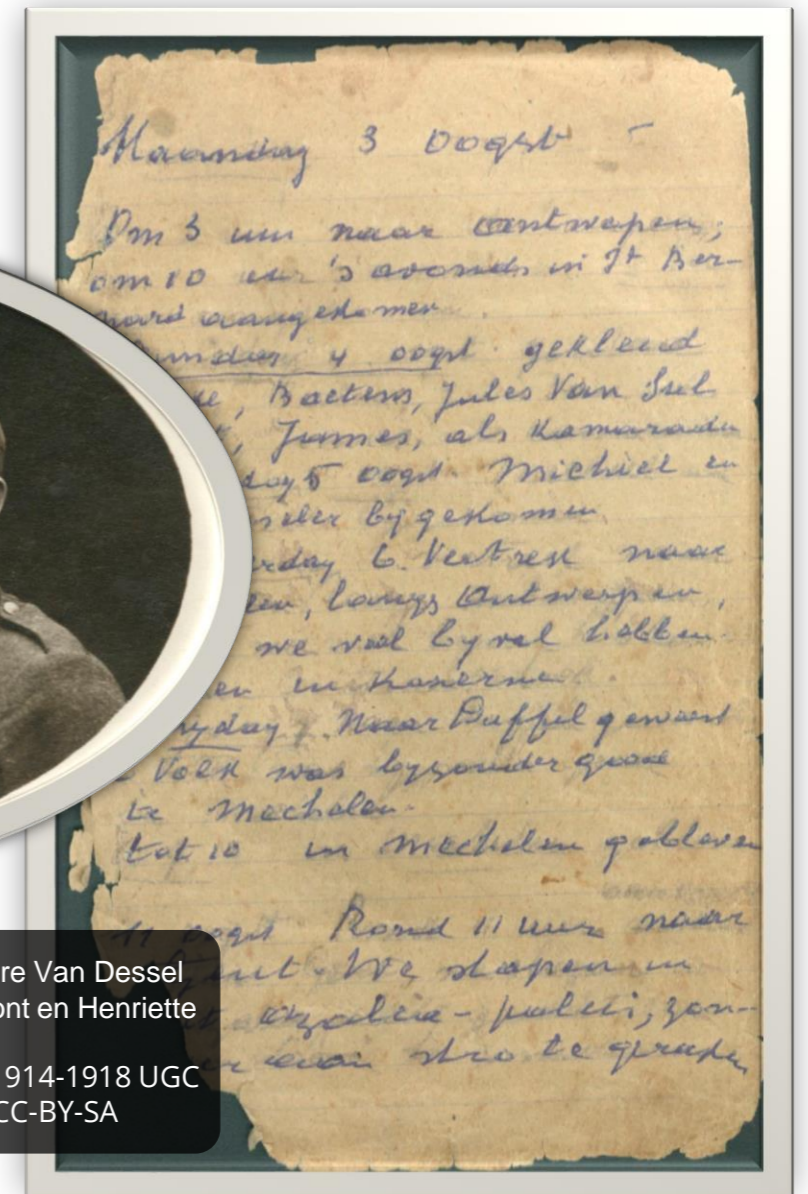 Maandag 3 oogst -
Om 3 uur naar Antwerpen;
om 10 uur 's avonds in St Ber-
nard aangekomen.
4 oogst. gekleed
Baetens, Jules Van
James, als Kamaraden
5 oogst. Michiel en
bygekomen
6. Vertrek naar
langs Antwerpen,
we veel byval hebben
en in Kazerne.
Naar Duffel geweest
Volk was byzonder goed
te Mechelen.
tot 10 in Mechelen gebleven
11 oogst Rond 11 uur naar
We slapen in
zon-
aan stro te geraken
re Van Dessel
ont en Henriette
1914-1918 UGC
CC-BY-SA